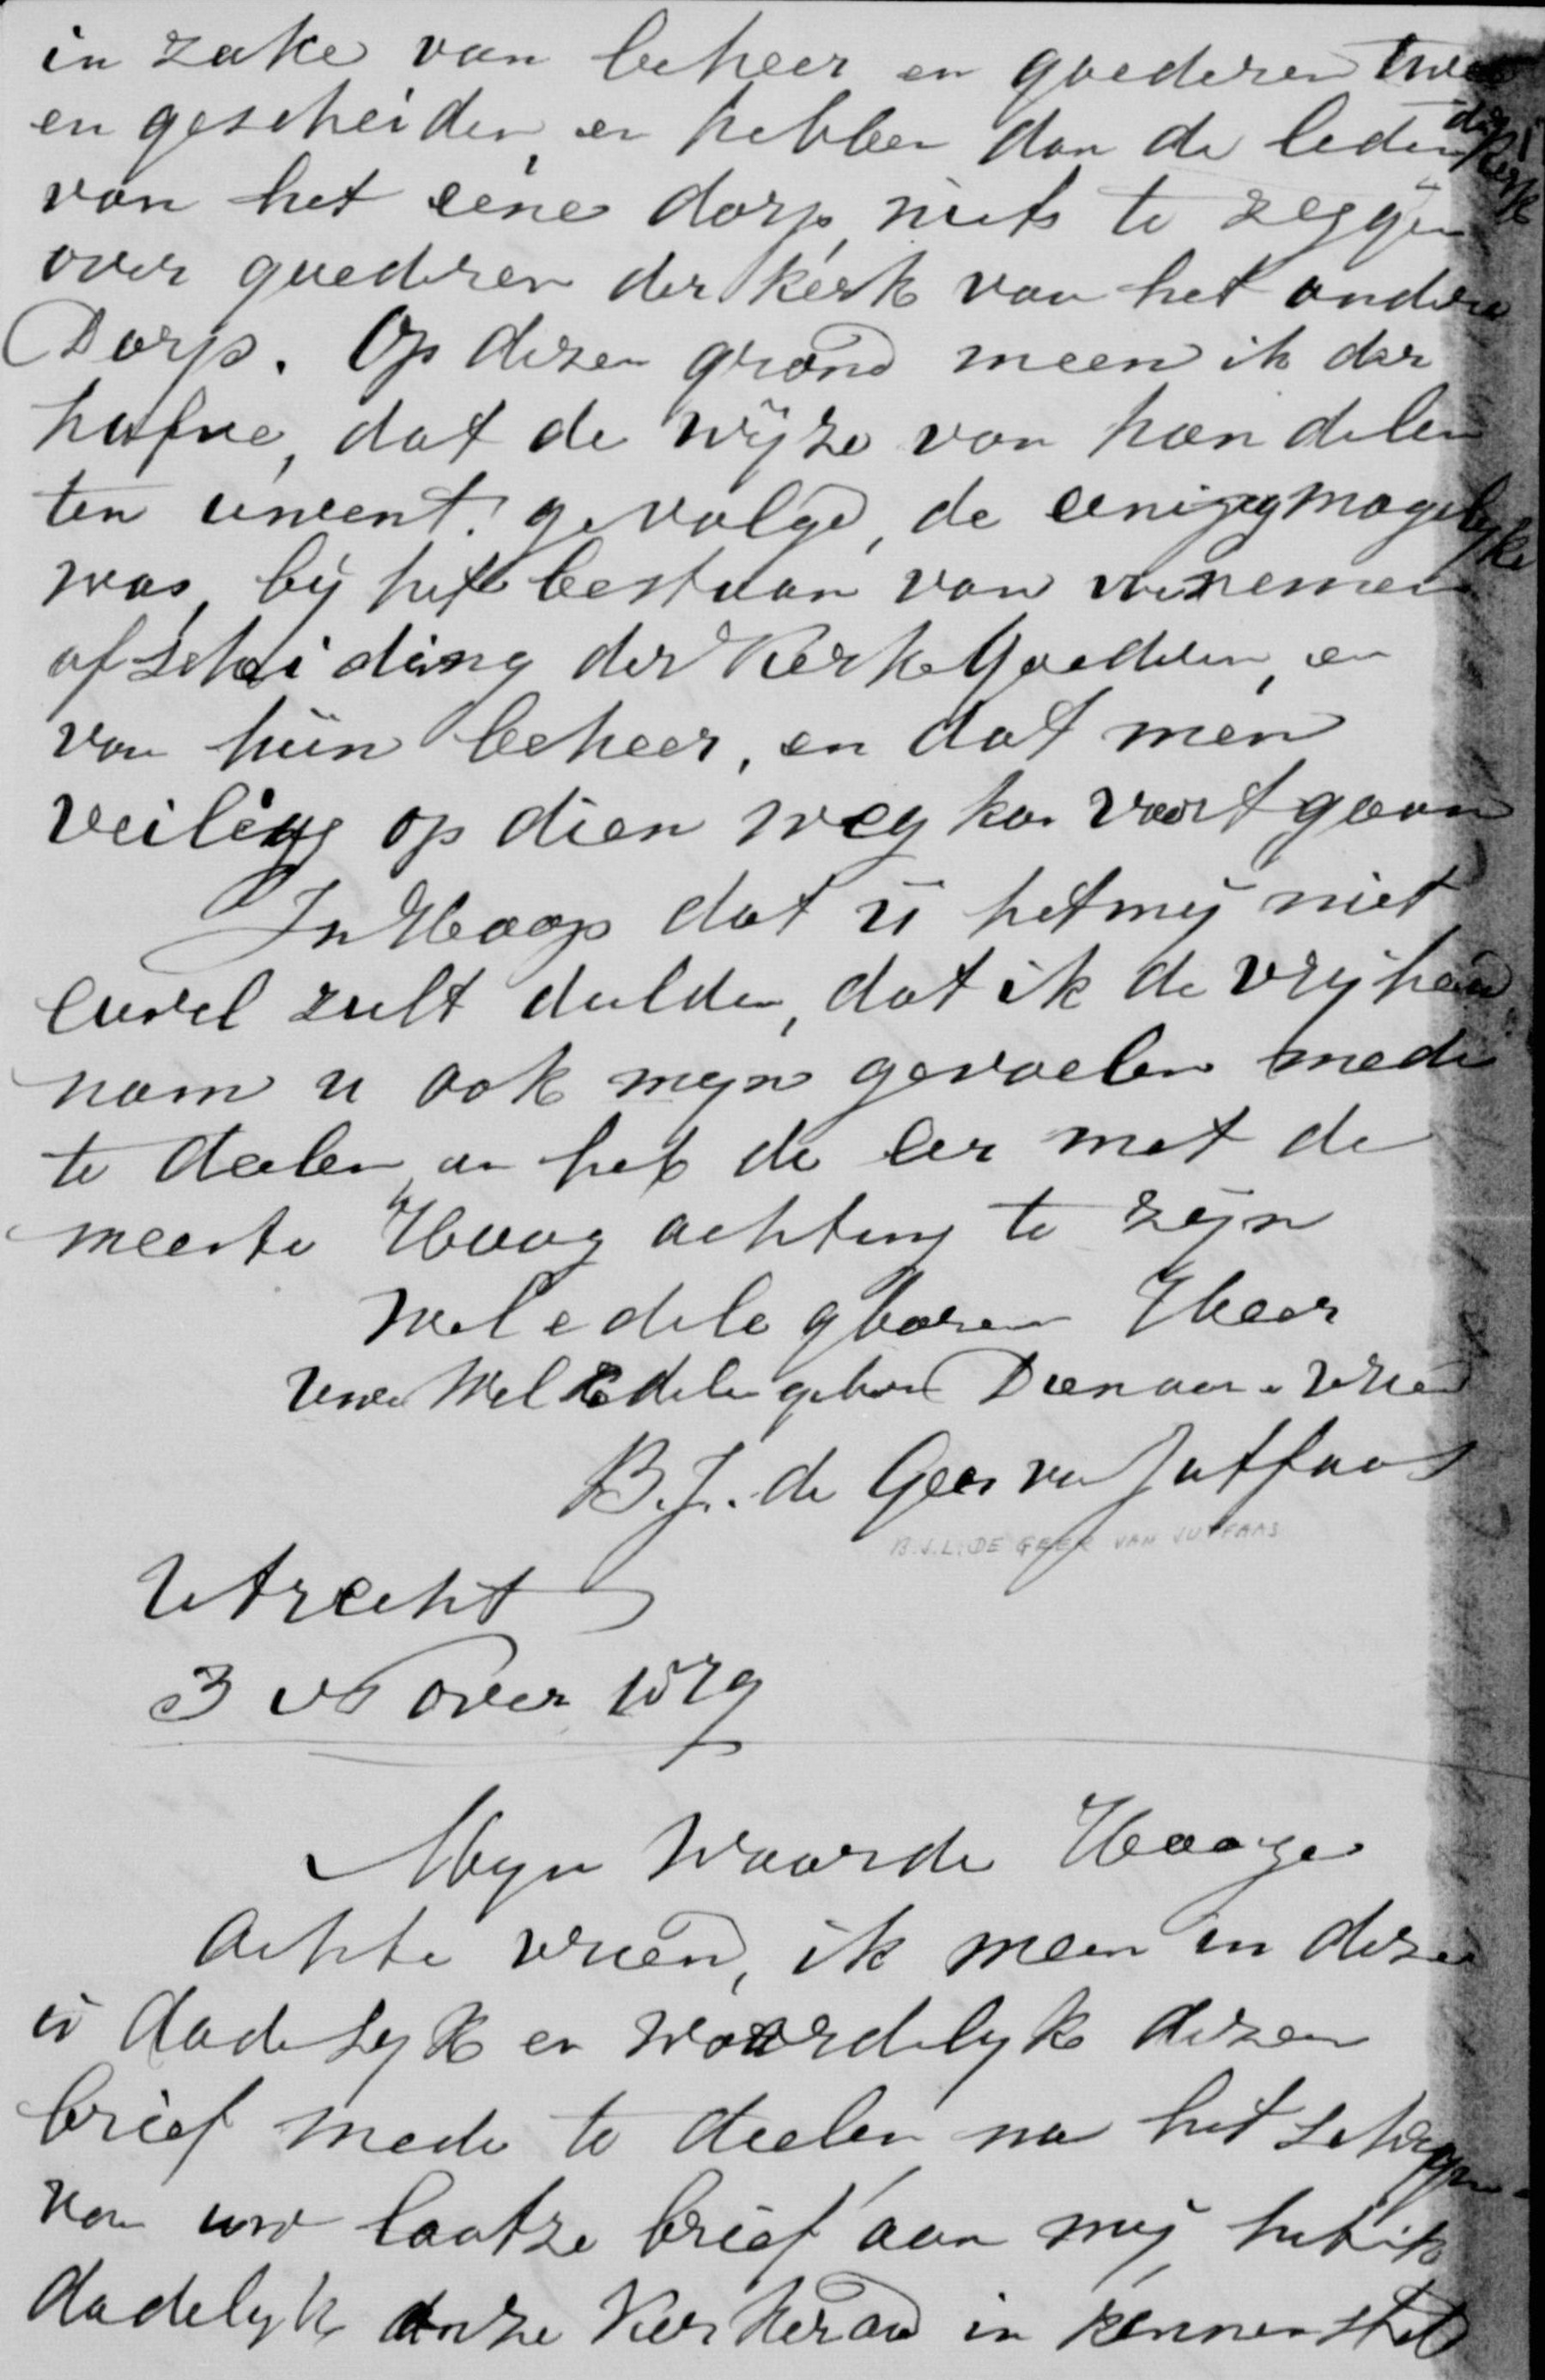 in zake van beheer en goederen twee
en gescheiden, en hebben dan de leden der kerk
van het eene dorp, niets te zeggen
over goederen der kerk van het andere
Dorp. Op dezen grond meen ik der
halve, dat de wijze van handelen
ten uwent gevolgd, de eenig mogelyke
was, bij het bestaan van
afscheiding der Kerke Goederen, en
van hun beheer, en dat men
veilig op dien weg kan voortgaan
In Hoop dat ü het mij niet
euvel zult dulden, dat ik de vrijheid
nam u ook mijn gevoelen mede
te deelen, en heb de eer met de
meeste Hoog achting te zijn
Wel edele gboren Heer
Uwe Wel Edele gebore Dienaar en vriend
B.J. de Geer van Jutfaas
B.J.L. DE GEER VAN JUTFAAS
Utrecht
3 Nover 1879
Myn Waarde Hooge
Achte vriend, ik meen in deze
ü dadelyk en woordelyk dezen
brief mede te deelen, na het
van uw laatze brief aan mij heb ik
dadelyk onze Kerkeraad in kennen steld